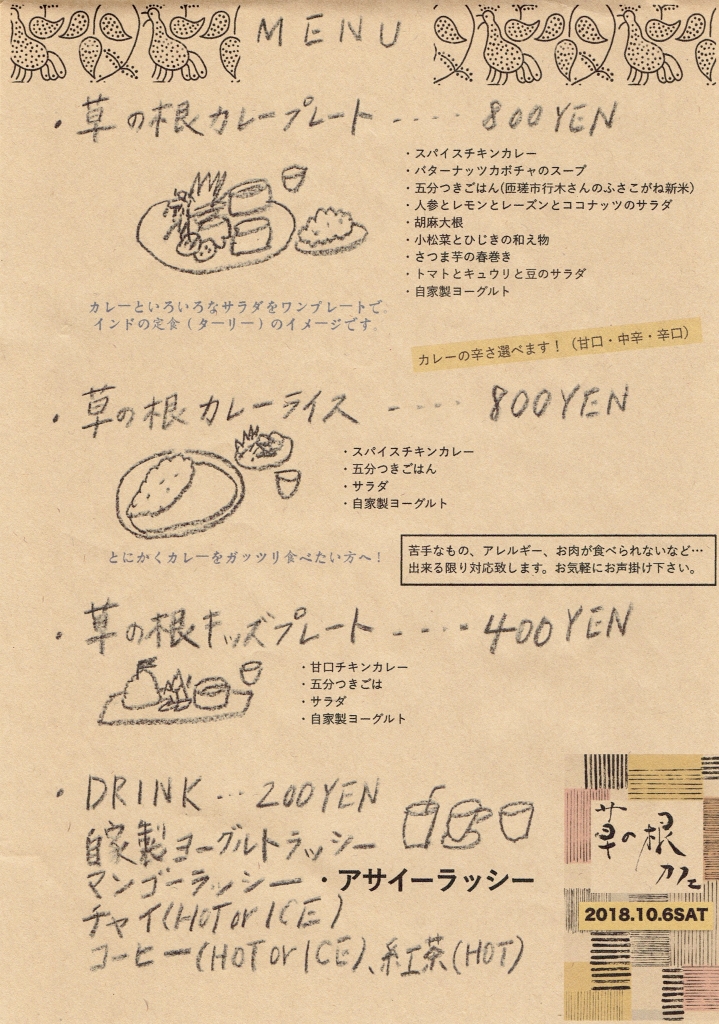 MENU
・草の根カレープレート ---- 800YEN
・スパイスチキンカレー
・バターナッツカボチャのスープ
・五分つきごはん(匝瑳市行木さんのふさこがね新米)
・人参とレモンとレーズンとココナッツのサラダ
・胡麻大根
・小松菜とひじきの和え物
・さつま芋の春巻き
・トマトとキュウリと豆のサラダ
・自家製ヨーグルト
カレーといろいろなサラダをワンプレートで
インドの定食(ターリー)のイメージです。
カレーの辛さ選べます!(甘口・中辛・辛口)
・草の根カレーライス ---- 800YEN
・スパイスチキンカレー
・五分つきごはん
・サラダ
・自家製ヨーグルト
とにかくカレーをガッツリ食べたい方へ!
苦手なもの、アレルギー、お肉が食べられないなど…
出来る限り対応致します。お気軽にお声掛け下さい。
・草の根キッズプレート ---- 400YEN
・甘口チキンカレー
・五分つきごは
・サラダ
・自家製ヨーグルト
・DRINK … 200YEN
自家製ヨーグルトラッシー
マンゴーラッシー ・アサイーラッシー
チャイ(HOT or ICE)
コーヒー(HOT or ICE)、紅茶(HOT)
草の根
カフェ
2018.10.6SAT